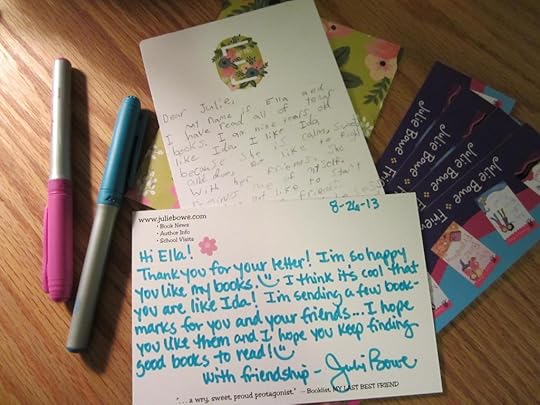 E
Dear Julie,
My name is Ella and
I have read all of your
books. I am nine years old
like Ida. I like Ida
because she is calm, sweet
and does not like to fight
with her friends. She
me of myself.
not like to
8-26-13
www.juliebowe.com
• Book News
• Author Info
• School Visits
Hi Ella!
Thank you for your letter! I'm so happy
you like my books. I think it's cool that
you are like Ida! I'm sending a few book-
marks for you and your friends... I hope
you like them and I hope you keep finding
good books to read!
With friendship - Julie Bowe
"... a wry, sweet, proud protagonist." — Booklist, MY LAST BEST FRIEND
Julie Bowe
Julie Bowe
Julie Bowe
Julie Bowe
Frie